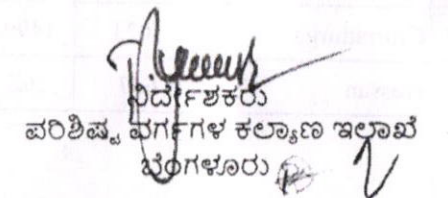 ನಿರ್ದೇಶಕರು
ಪರಿಶಿಷ್ಟ ವರ್ಗಗಳ ಕಲ್ಯಾಣ ಇಲಾಖೆ
ಬೆಂಗಳೂರು